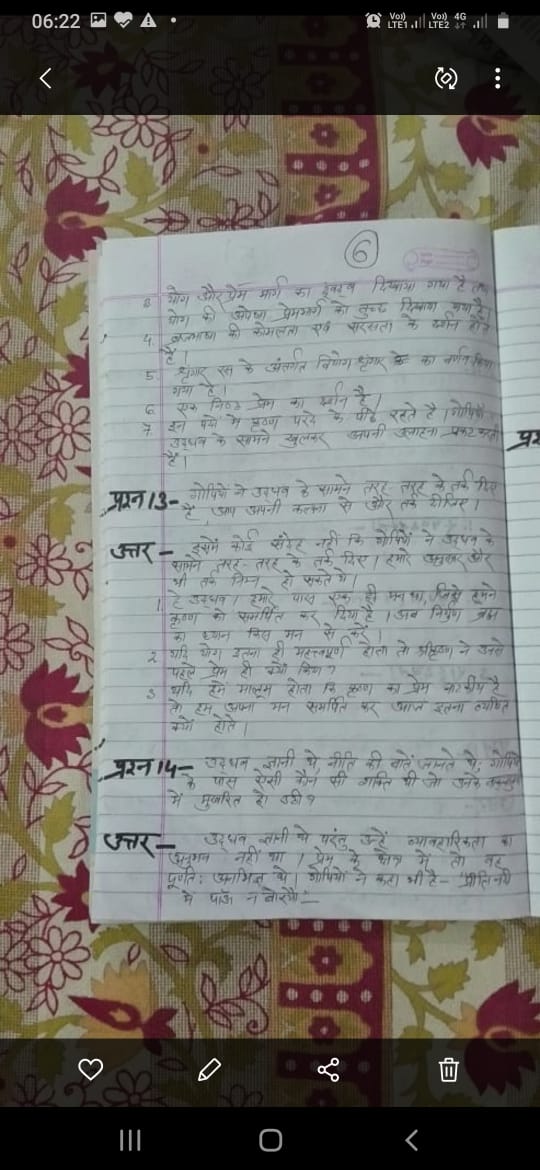 06:22
Vo)) LTE1 Vo)) LTE2 4G
6
3 योग और प्रेम मार्ग का द्वंद्व दिखाया गया है तथा
योग की अपेक्षा प्रेममार्ग को तुच्छ दिखाया गया है।
4. ब्रजभाषा की कोमलता एवं सरसता के दर्शन होते
है।
5. शृंगार रस के अंतर्गत वियोग शृंगार का वर्णन किया
गया है।
6 एक निष्ठ प्रेम का दर्शन है।
7 इन पदों में कृष्ण परदे के पीछे रहते है। गोपियाँ
उद्धव के सामने खुलकर अपनी उलाहना प्रकट करती
हैं।
प्रश्न 13- गोपियों ने उद्धव के सामने तरह-तरह के तर्क दिए
हैं, आप अपनी कल्पना से और तर्क दीजिए।
उत्तर - इसमें कोई संदेह नहीं कि गोपियों ने उद्धव के
सामने तरह-तरह के तर्क दिए। हमारे अनुसार और
भी तर्क निम्न हो सकते थे।
1. हे उद्धव। हमारे पास एक ही मन था, जिसे हमने
कृष्ण को समर्पित कर दिया है। अब निर्गुण ब्रह्म
का ध्यान किस मन से करें।
2 यदि योग इतना ही महत्त्वपूर्ण होता तो श्रीकृष्ण ने उनसे
पहले प्रेम ही क्यों किया?
3 यदि हमें मालूम होता कि कृष्ण का प्रेम नाटकीय है
तो हम अपना मन समर्पित कर आज इतना व्यथित
क्यों होते।
प्रश्न 14- उद्धव ज्ञानी थे, नीति की बातें जानते थे; गोपियों
के पास ऐसी कौन सी शक्ति थी जो उनके
में मुखरित हो उठी?
उत्तर - उद्धव ज्ञानी थे परंतु उन्हें व्यावहारिकता का
अनुभव नहीं था। प्रेम के क्षेत्र में तो वह
पूर्णत: अनभिज्ञ थे। गोपियों ने कहा भी है- 'प्रीति नदी
में पाउँ न बोरयौ'-